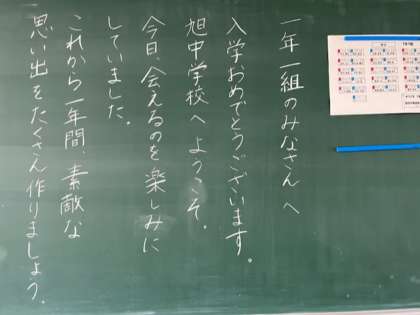 一年一組のみなさんへ
入学おめでとうございます。
旭中学校へようこそ。
今日、会えるのを楽しみに
していました。
これから一年間、素敵な
思い出をたくさん作りましょう。